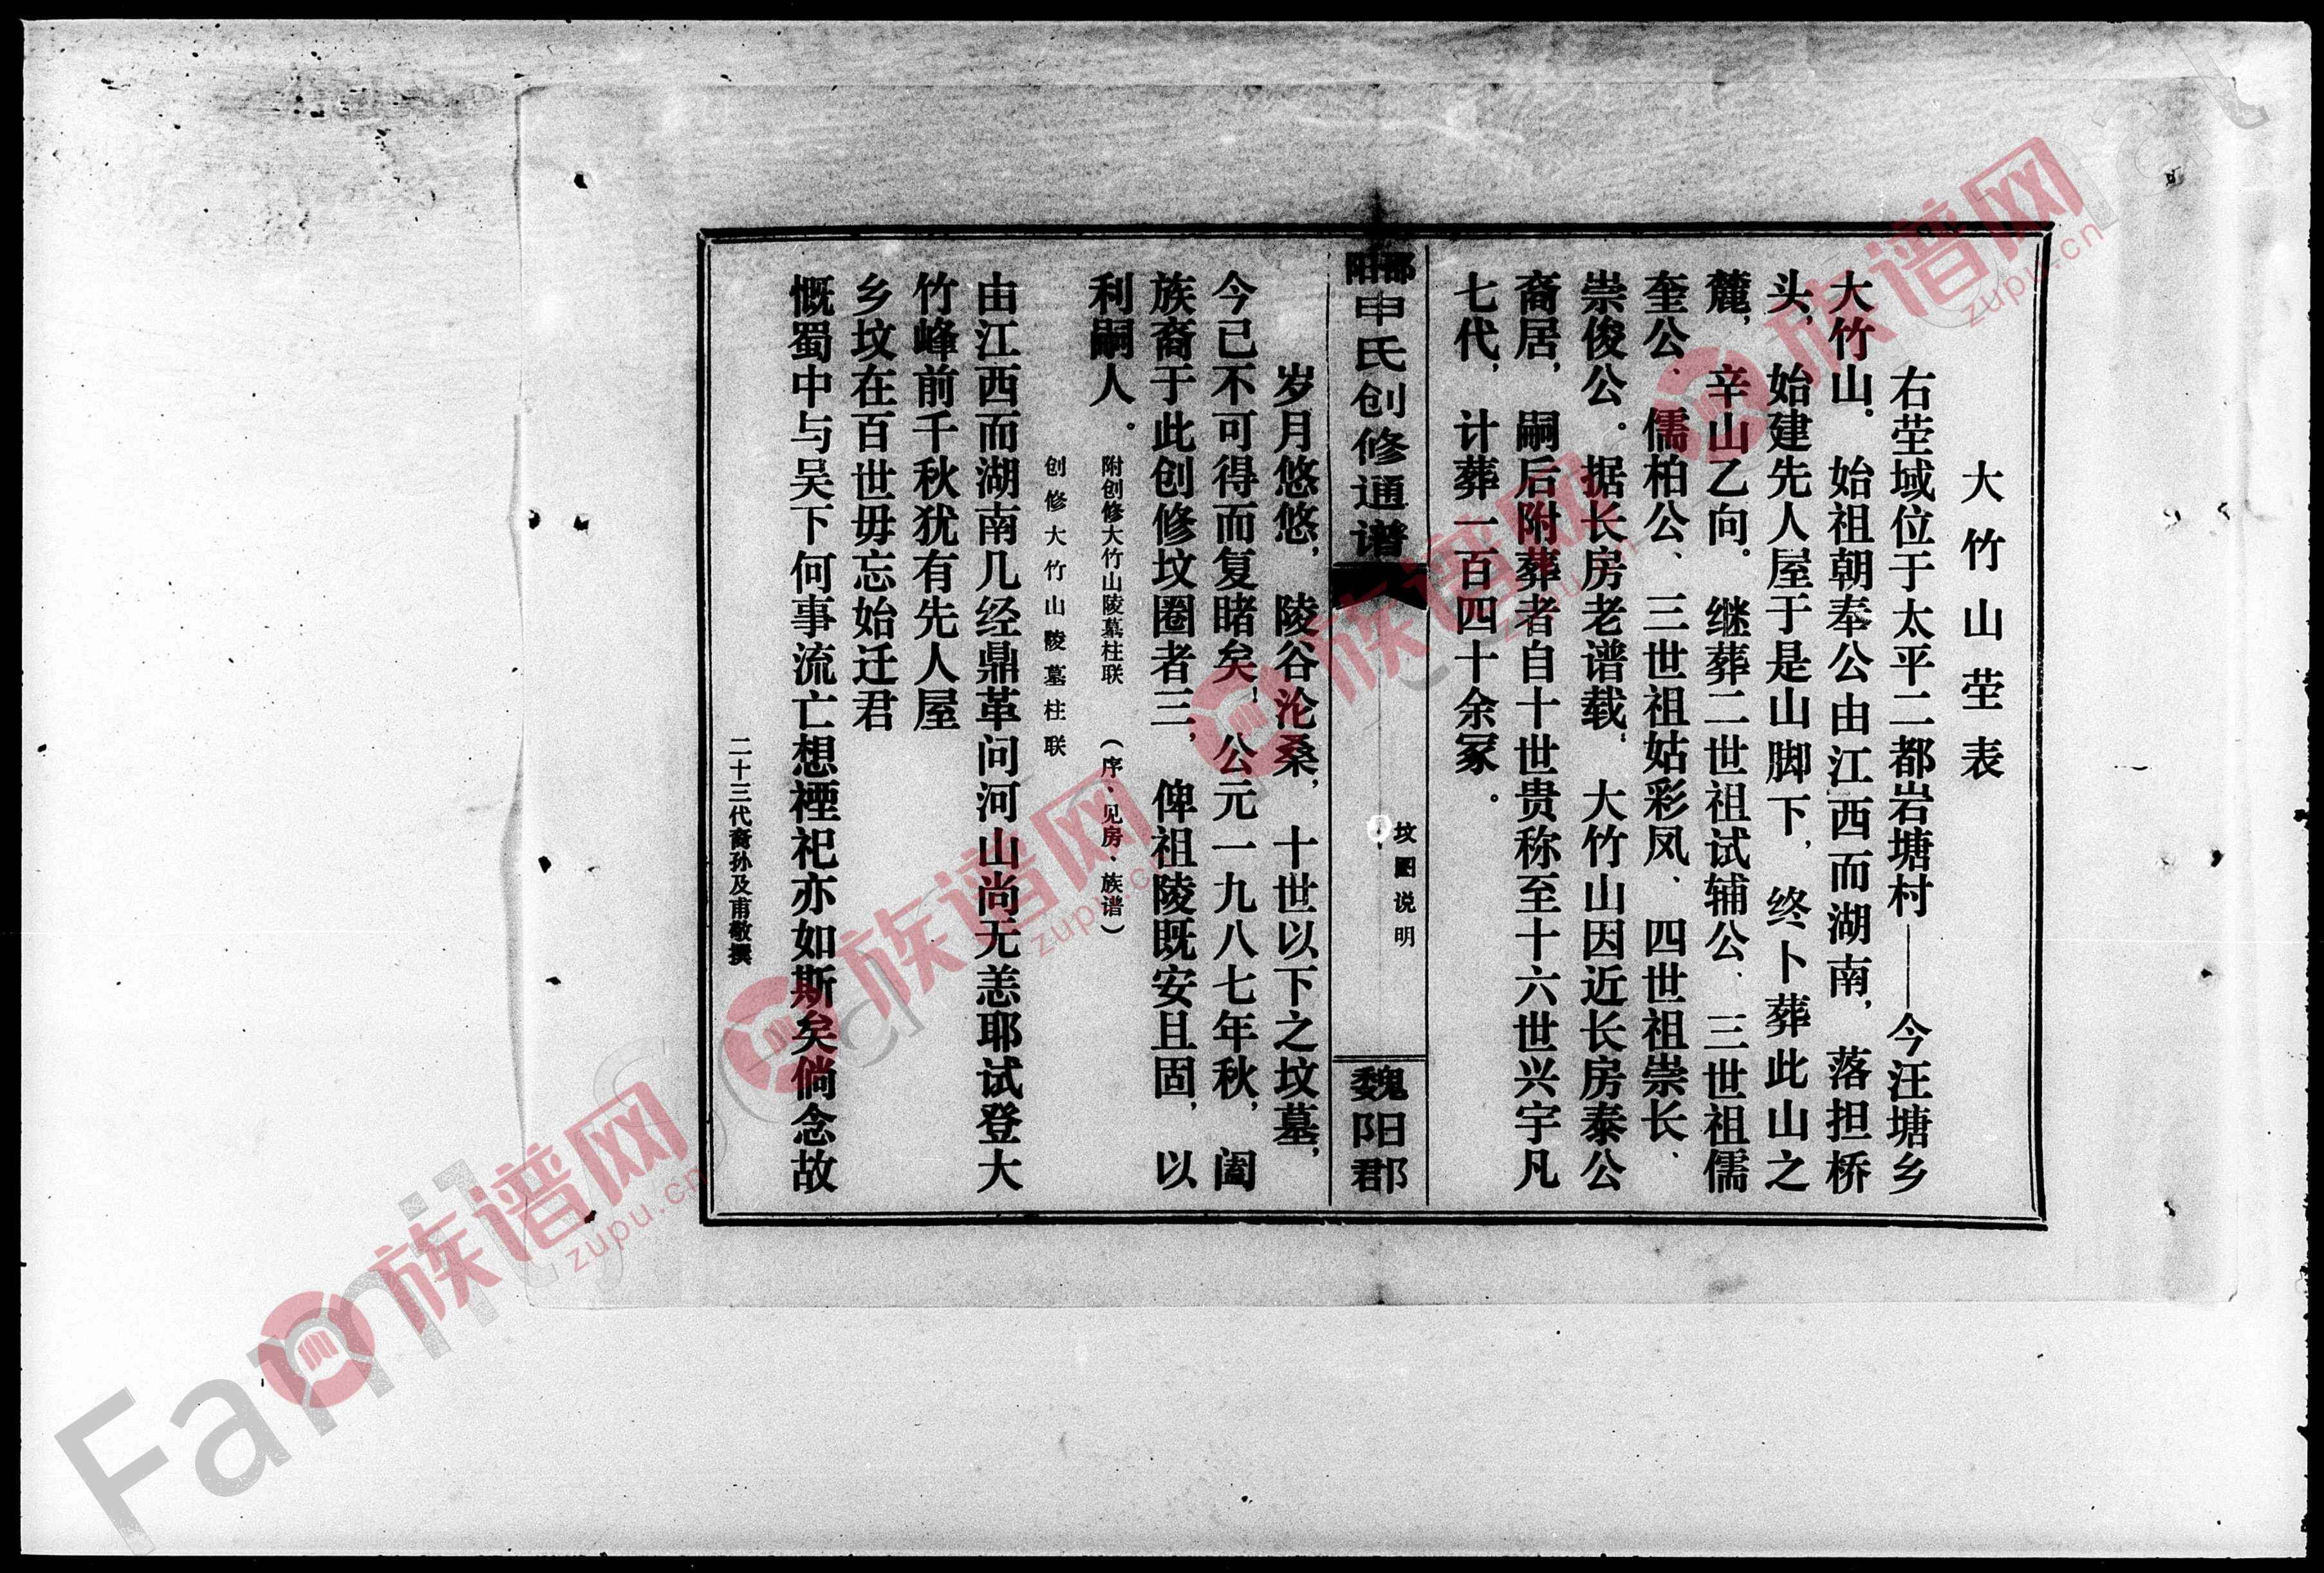 大竹山茔表
右茔域位于太平二都岩塘村——今汪塘乡
大竹山。始祖朝奉公由江西而湖南，落担桥
头，始建先人屋于是山脚下，终卜葬此山之
麓，辛山乙向。继葬二世祖试辅公、三世祖儒
奎公、儒柏公、三世祖姑彩凤、四世祖崇长、
崇俊公。据长房老谱载，大竹山因近长房泰公
裔居，嗣后附葬者自十世贵称至十六世兴宇凡
七代，计葬一百四十余冢。
邵阳申氏创修通谱
坟图说明
魏阳郡
岁月悠悠，陵谷沦桑，十世以下之坟墓，
今已不可得而复睹矣！公元一九八七年秋，阖
族裔于此创修坟圈者三，俾祖陵既安且固，以
利嗣人。
附创修大竹山陵墓柱联（序、见房、族谱）
创修大竹山陵墓柱联
由江西而湖南几经鼎革问河山尚无恙耶试登大
竹峰前千秋犹有先人屋
乡坟在百世毋忘始迁君
慨蜀中与吴下何事流亡想禋祀亦如斯矣倘念故
二十三代裔孙及甫敬撰
族谱网
zupu.cn
族谱网
zupu.cn
族谱网
zupu.cn
族谱网
zupu.cn